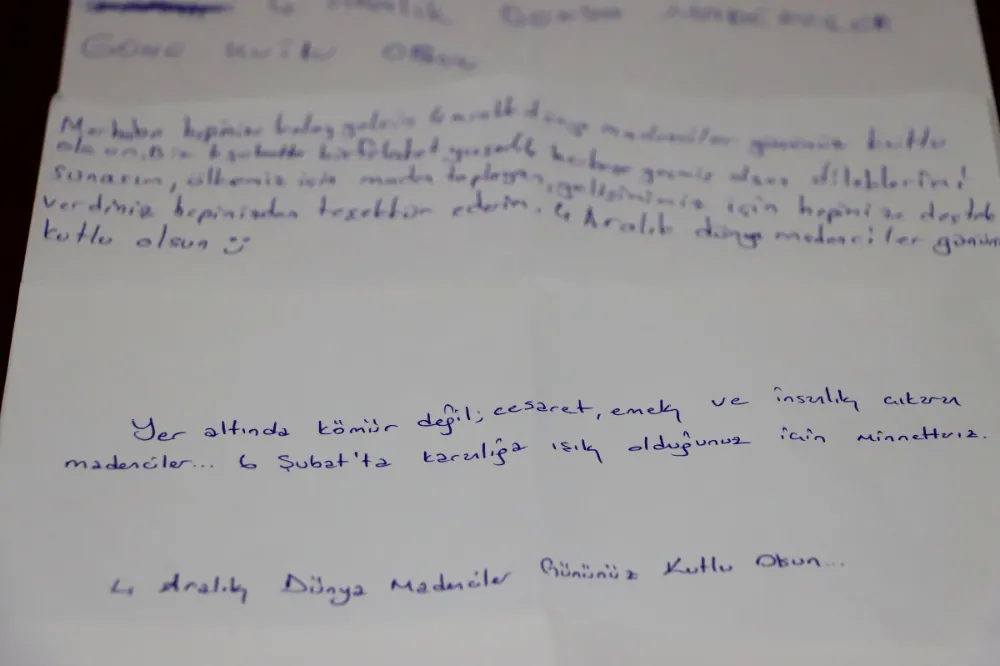 4 Dünya
Günü Kutlu Olsun
Merhaba hepinize kolay gelsin 4 aralık dünya madenciler gününüz kutlu
olsun. Biz 6 şubatta bir felaket yaşadık geçmiş olsun dileklerimi
sunarım, ülkemiz için maden toplayan, gelişimimiz için hepinize destek
verdiniz hepinizden teşekkür ederim. 4 Aralık dünya madenciler günün
kutlu olsun
Yer altında kömür değil; cesaret, emek ve insanlık çıkaran
madenciler... 6 Şubat'ta karanlığa ışık olduğunuz için minnettarız.
4 Aralık Dünya Madenciler Gününüz Kutlu Olsun...